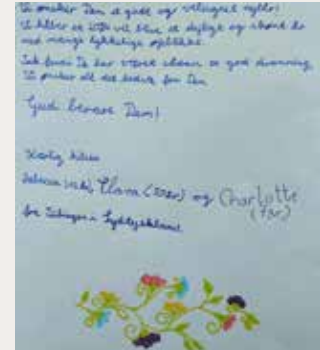 Vi ønsker Dem et godt og velsignet nytår!
Vi håber at 2024 vil blive et dejligt og skønt år
med mange lykkelige øjeblikke.
Tak fordi De har været sådan en god dronning,
Vi ønsker alt det bedste for Dem
Gud bevare Dem!
Kærlig hilsen
Clara og Charlotte
(7år)
fra i Sydtyskland